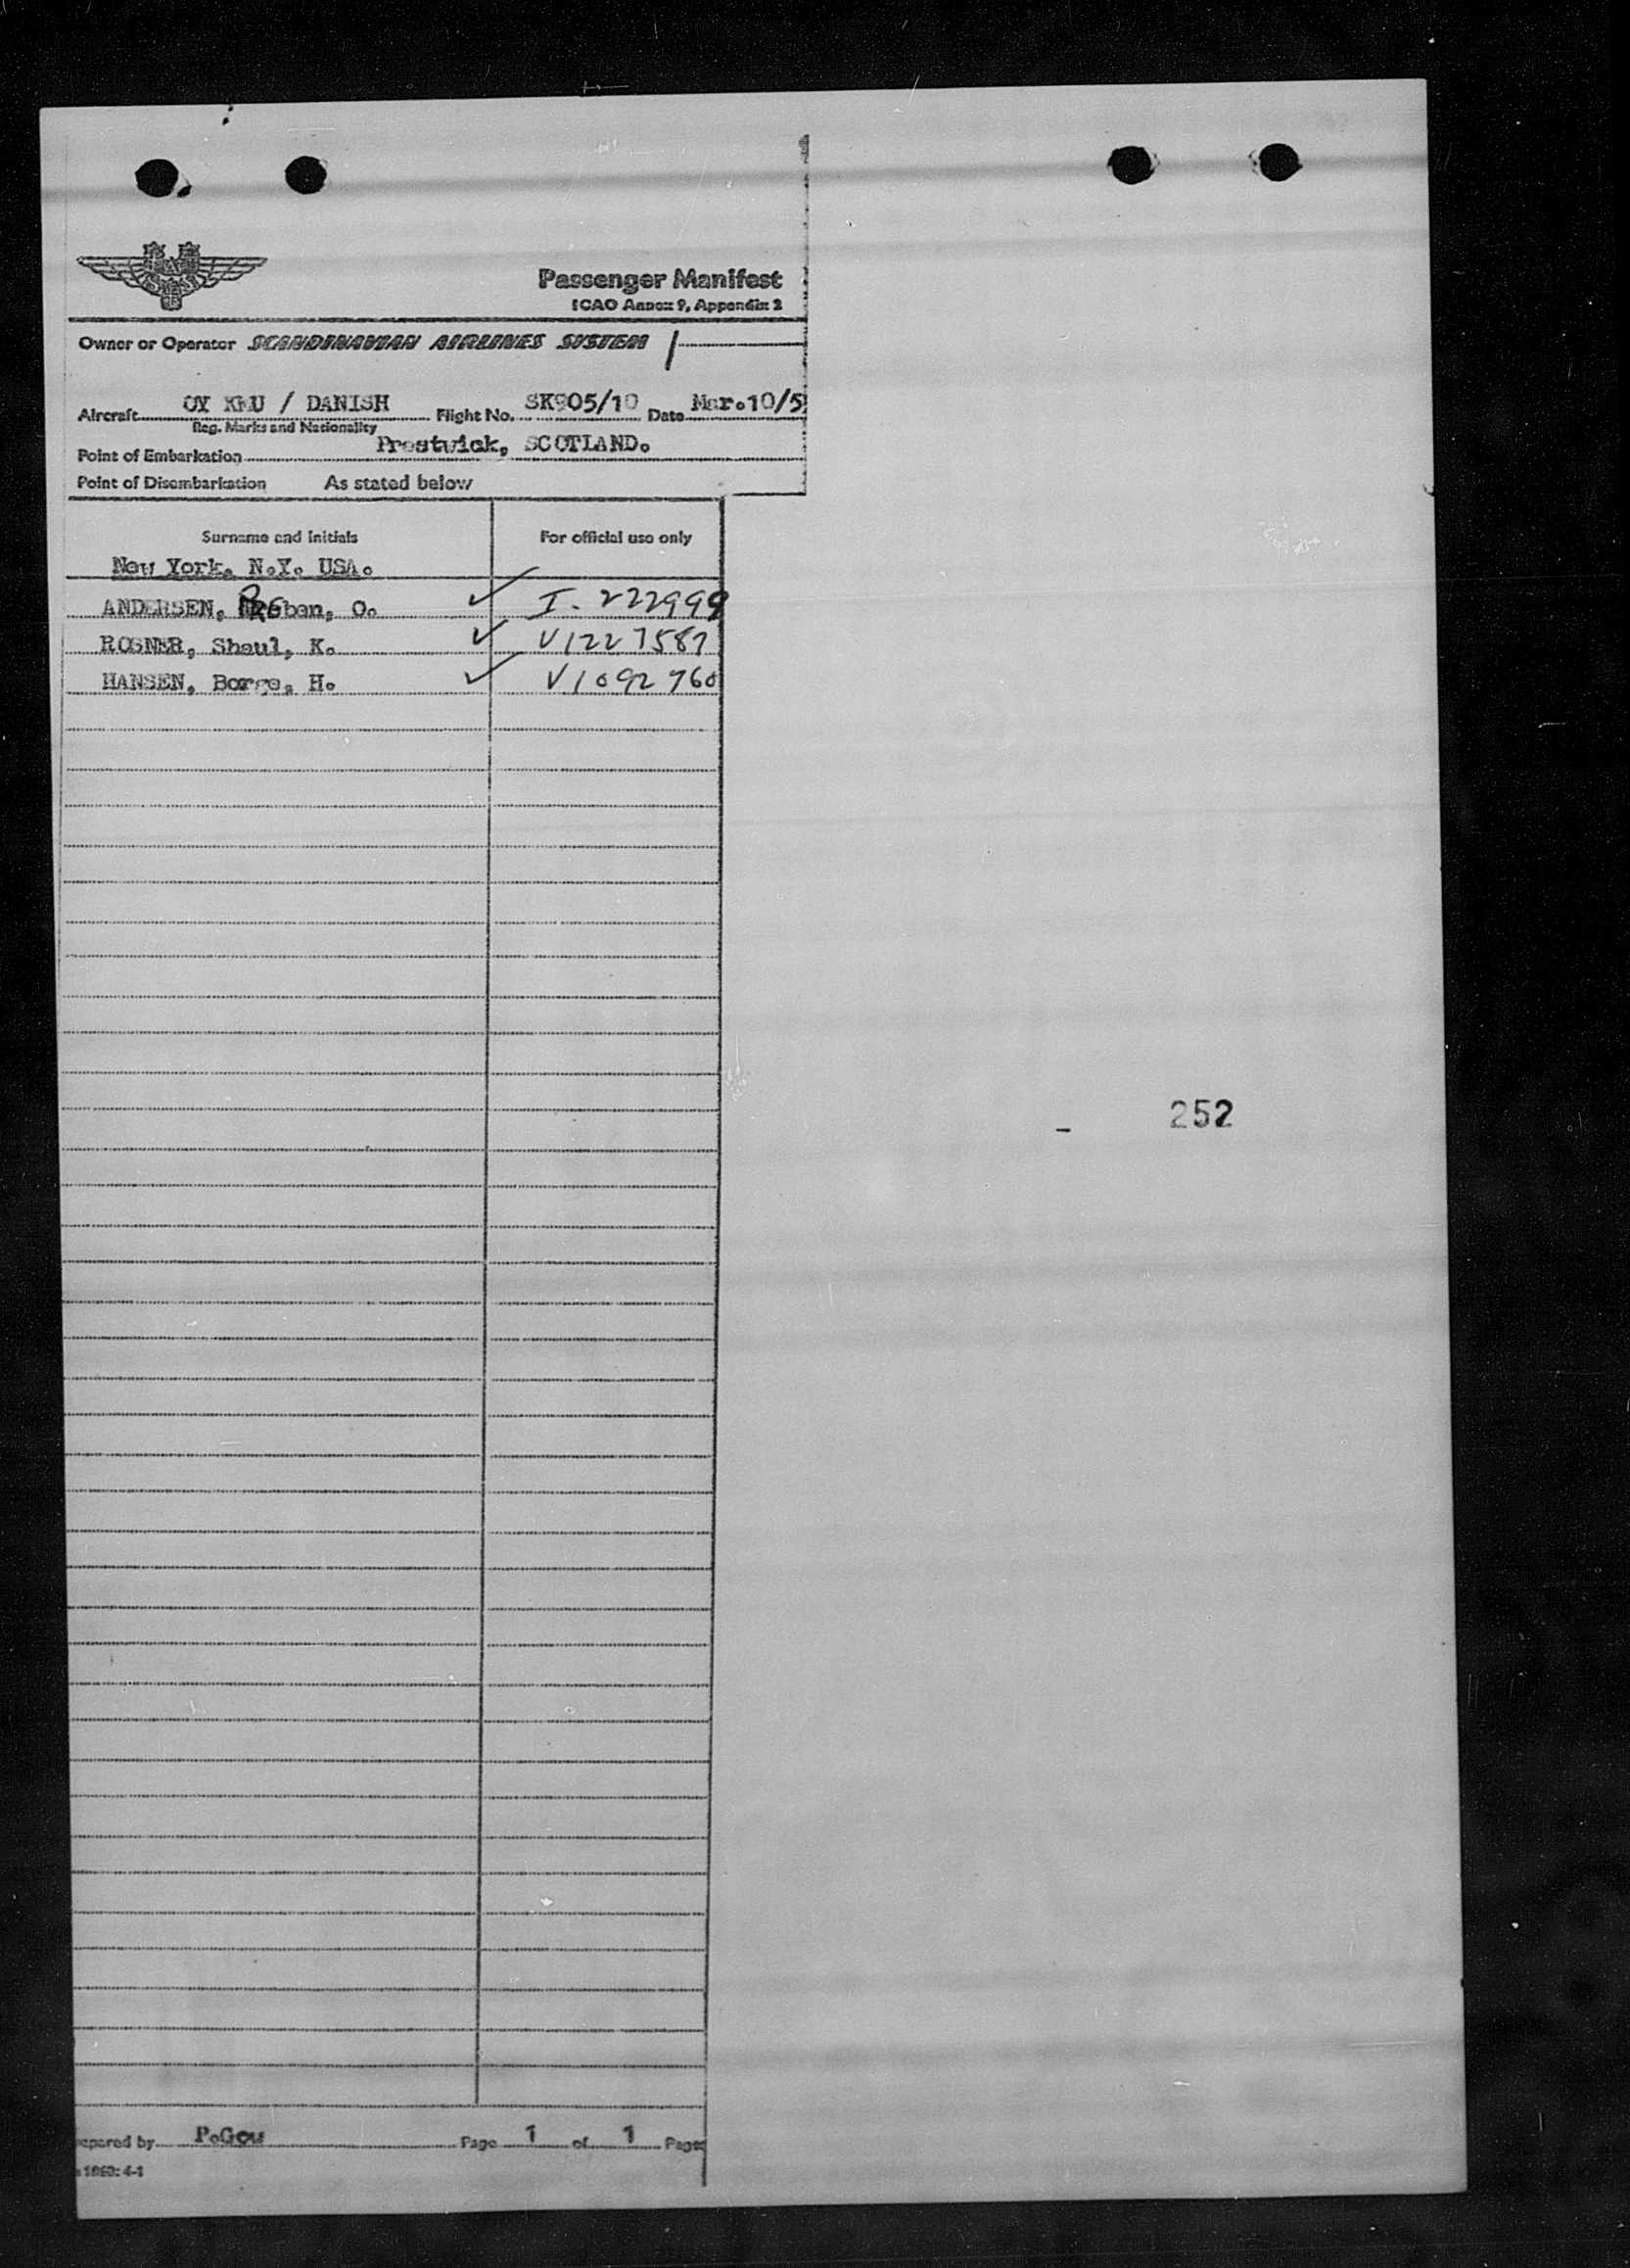 Passenger Manifest
ICAO Annex 9, Appendix 2
Owner or Operator SCANDINAVIAN AIRLINES SYSTEM
Aircraft OY KMU / DANISH Flight No. SK905/10 Date Mar.10/5
Reg. Marks and Nationality
Point of Embarkation Prestwick, SCOTLAND.
Point of Disembarkation As stated below
Surname and initials For official use only
New York, N.Y. USA.
ANDERSEN, Preben, O. ✓ I-222999
ROSNER, Shaul, K. ✓ V1227587
HANSEN, Borge, H. ✓ V1092960
252
epared by P.Gow Page 1 of 1 Pages